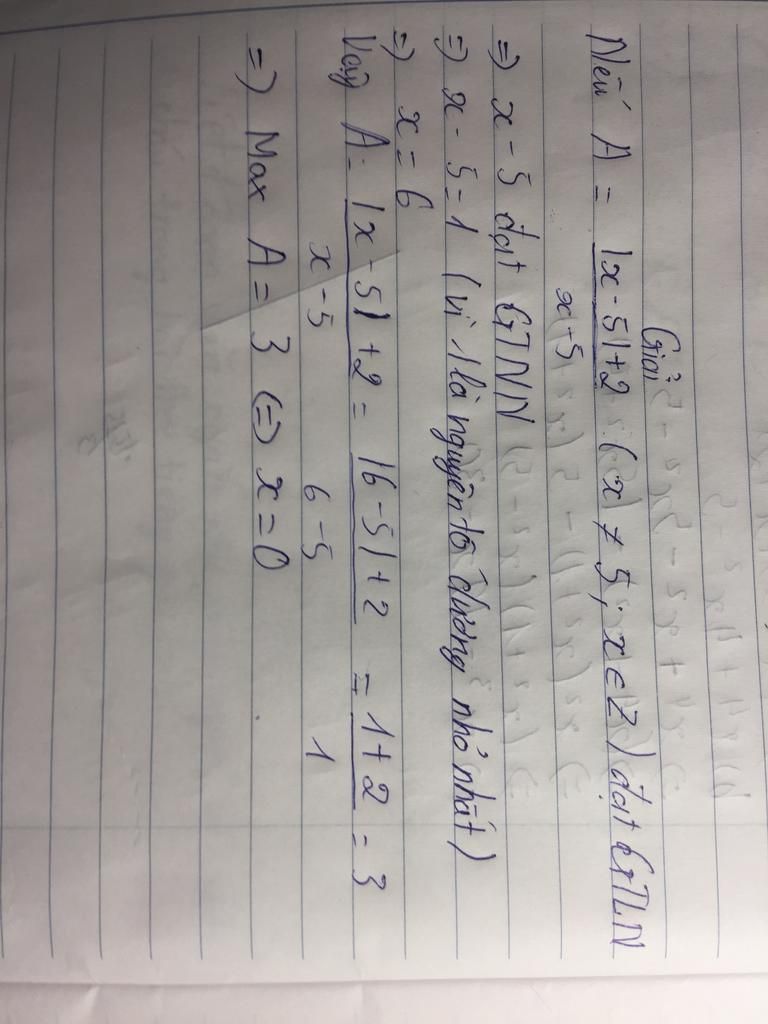 Giải
Nếu A = |x-5|+2 / x-5 (x ≠ 5; x ∈ Z) đạt GTLN
=) x-5 đạt GTNN
=) x-5=1 (vì 1 là nguyên tố dương nhỏ nhất)
=) x=6
Vậy A = |x-5|+2 / x-5 = |6-5|+2 / 6-5 = 1+2 / 1 = 3
=) Max A = 3 (=) x=0